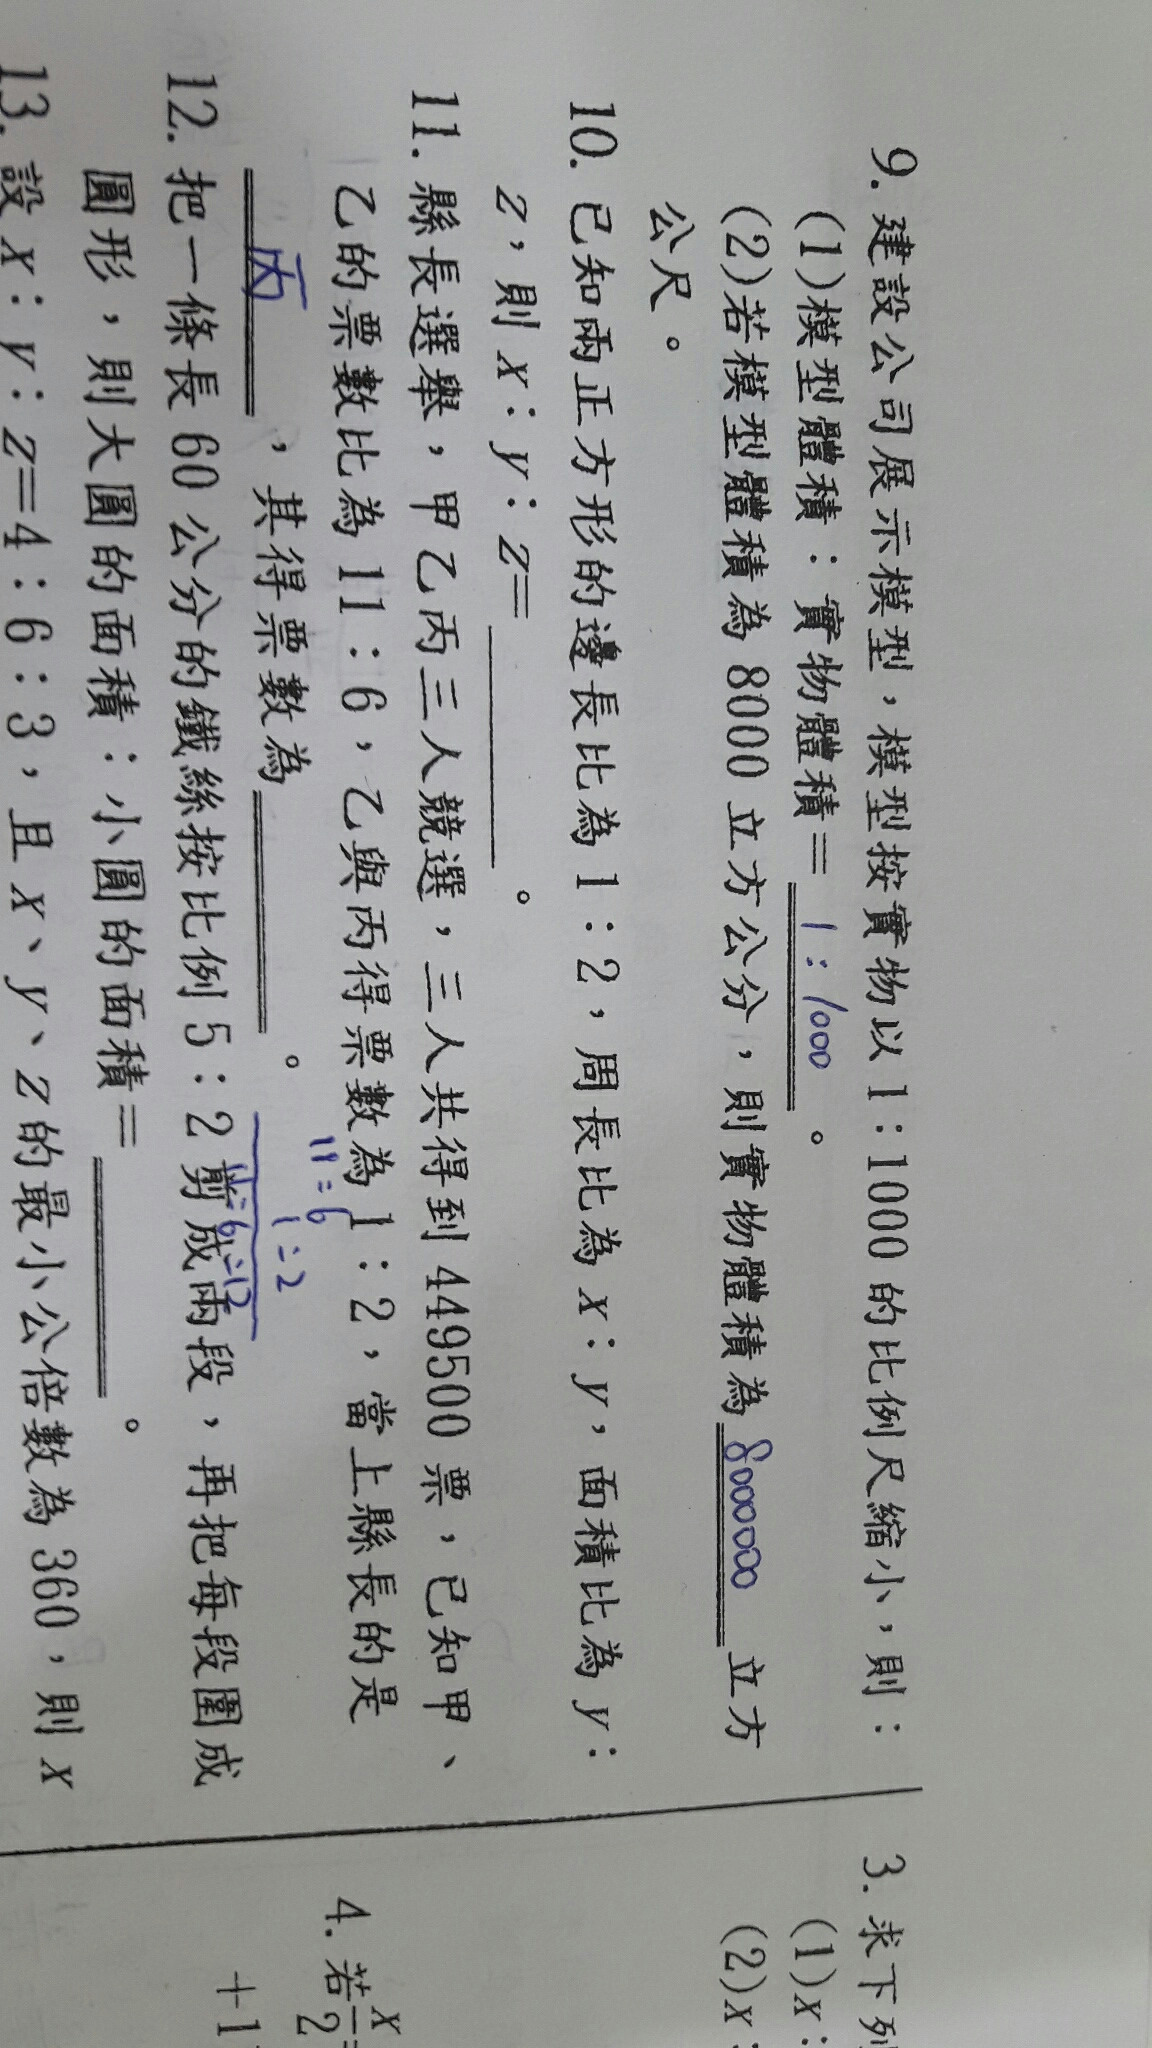 9. 建設公司展示模型，模型按實物以 1：1000 的比例尺縮小，則：
(1)模型體積：實物體積＝ 1：1000 。
(2)若模型體積為 8000 立方公分，則實物體積為 8000000 立方
公尺。
10. 已知兩正方形的邊長比為 1：2，周長比為 x：y，面積比為 y：
z，則 x：y：z＝ 。
11. 縣長選舉，甲乙丙三人競選，三人共得到 449500 票，已知甲、
乙的票數比為 11：6，乙與丙得票數為 1：2，當上縣長的是
丙 ，其得票數為 。
11：6
1：2
11：6：12
12. 把一條長 60 公分的鐵絲按比例 5：2 剪成兩段，再把每段圍成
圓形，則大圓的面積：小圓的面積＝ 。
13. 設 x：y：z＝4：6：3，且 x、y、z 的最小公倍數為 360，則 x
3. 求下列
(1)x：
(2)x：
4. 若x/2=
+1